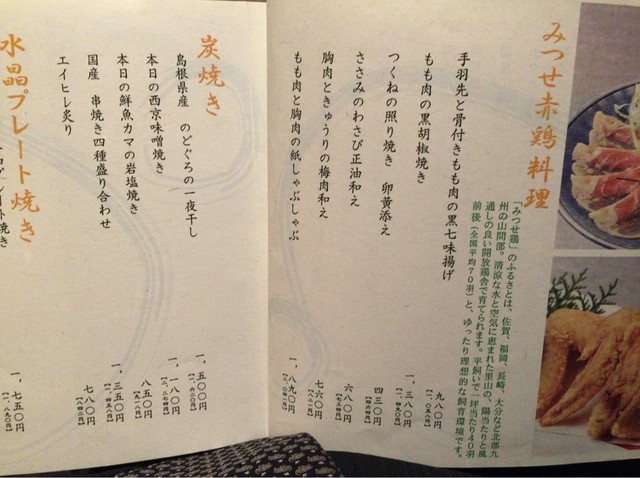 みつせ赤鶏料理
「みつせ鶏」のふるさとは、佐賀、福岡、長崎、大分など北部九
州の山間部。清涼な水と空気に恵まれた里山の、陽当たりと風
通しの良い開放鶏舎で育てられます。平飼いで一坪当たり40羽
前後（全国平均70羽）と、ゆったり理想的な飼育環境です。
手羽先と骨付きもも肉の黒七味揚げ 九八〇円
もも肉の黒胡椒焼き 一、三八〇円
つくねの照り焼き 卵黄添え 四三〇円
ささみのわさび正油和え 六八〇円
胸肉ときゅうりの梅肉和え 七六〇円
もも肉と胸肉の紙しゃぶしゃぶ 一、八九〇円
炭焼き
島根県産 のどぐろの一夜干し 一、五〇〇円【一、六二〇円】
本日の西京味噌焼き 一、一八〇円
本日の鮮魚カマの岩塩焼き 八五〇円【九一八円】
国産 串焼き四種盛り合わせ 一、三五〇円
エイヒレ炙り 七八〇円【八四二円】
水晶プレート焼き
一、七五〇円【一、八九〇円】